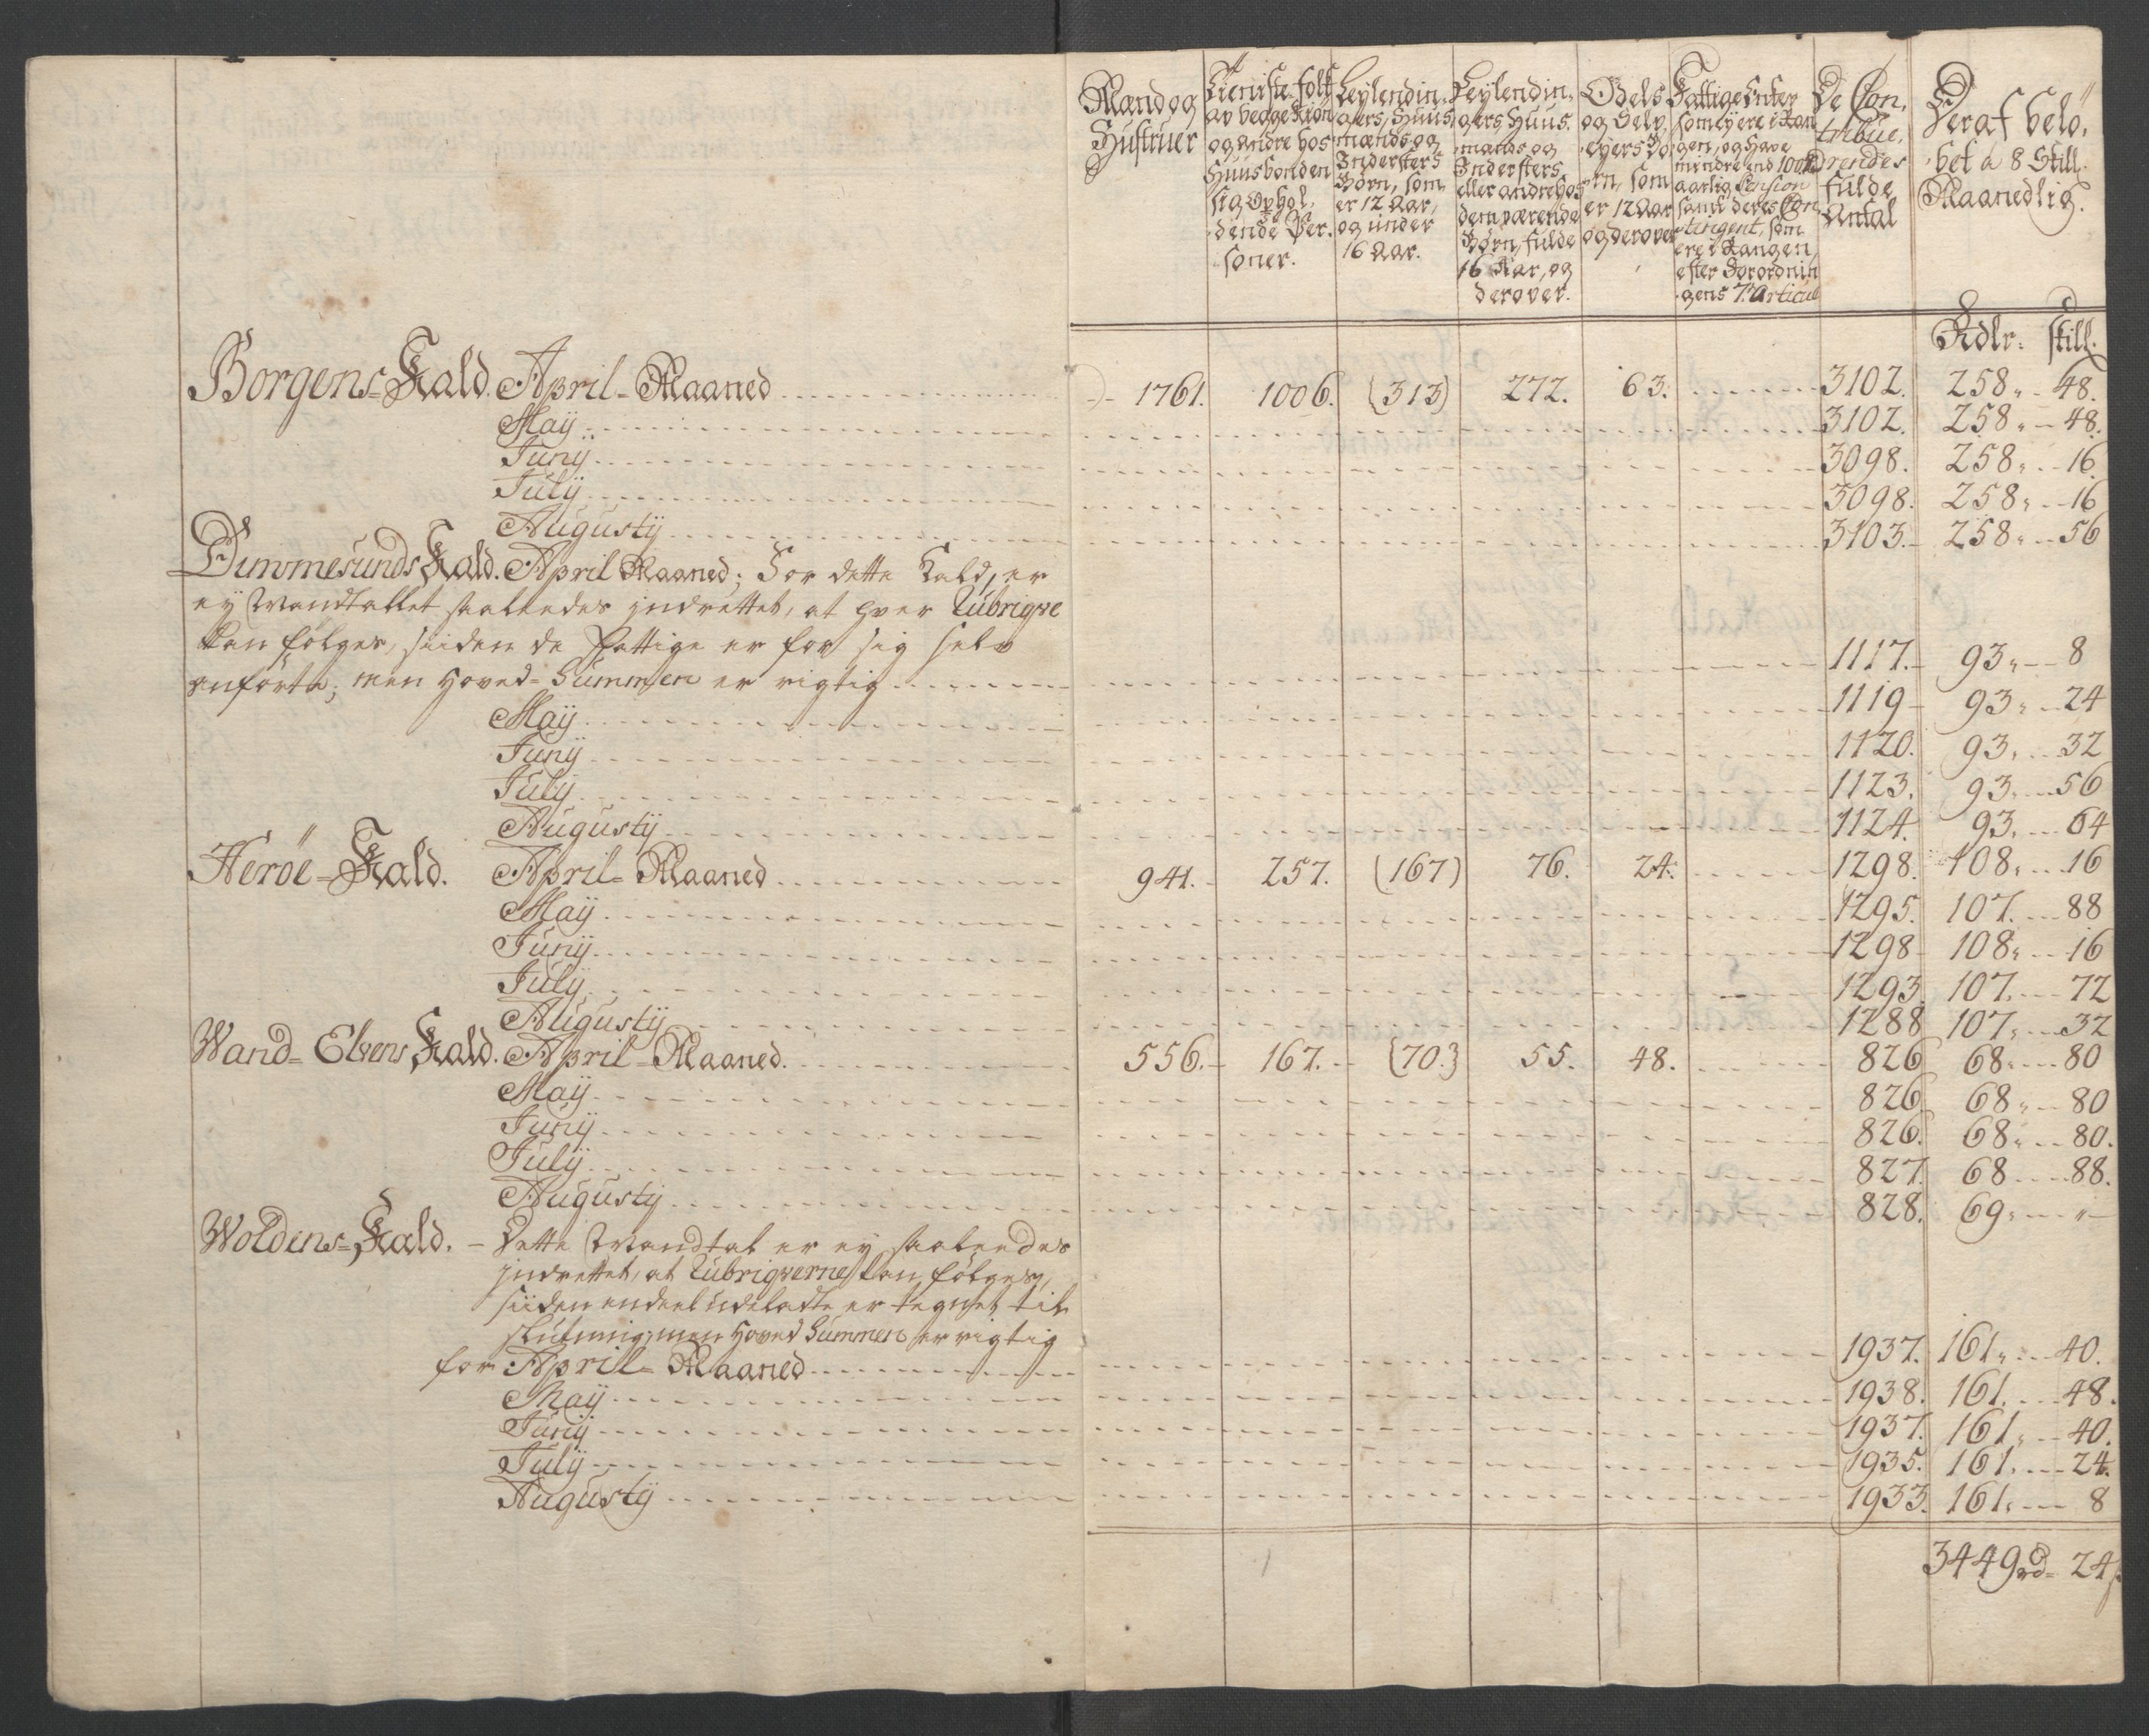 Mænd og
Hustruer
Tieniste-folk
av begge Kiön
og andre hos
Huusbonden
sig Ophol-
dende Per-
soner.
Leylendin-
gers, Huus-
mænds og
Indersters
Börn, som
er 12 Aar,
og under
16 Aar.
Leylendin-
gers Huus-
mænds og
Indersters
eller andre hos
dem værende
Börn, fulde
16 Aar, og
derover.
Odels
og Selv-
eyers Bö-
rn, som
er 12 Aar
og derover
Fattige Enker
som ey ere i Ran-
gen, og have
mindre end 100
aarlig Pension
samt deres Con-
tingent, som
ere i Rangen
efter Forordnin-
gens 7. Articul
De Con-
tribue-
rendes
fulde
Antal
Deraf belö-
bet a 8 Skill.
Maanedlig.
Rdlr. skill.
Borgens-Kald. April-Maaned 1761. 1006. (313) 272. 63. 3102. 258 48.
Maij 3102. 258 48.
Junij 3098. 258 16
Julij 3098. 258 16
Augustij 3103. 258 56
Dimmesunds Kald. April Maaned; For dette Kald, er
ey Mandtallet saaledes indrettet, at hver Rubriqve
kan fölges, siiden de fattige er for sig selv
anförte; men Hoved-Summen er rigtig 1117. 93 8
Maij 1119 93 24
Junij 1120. 93 32
Julij 1123. 93 56
Augustij 1124. 93 64
Heröe-Kald. April-Maaned 941. 257. (167) 76. 24. 1298. 108 16
Maij 1295. 107 88
Junij 1298 108 16
Julij 1293 107 72
Augustij 1288 107 32
Wand-Elvens Kald. April-Maaned. 556. 167. (70.) 55. 48. 826 68 80
Maij 826 68 80
Junij 826. 68 80.
Julij 827. 68 88.
Augustij 828. 69 "
Woldens-Kald. - Dette Mandtal er ey saaledes
indrettet, at Rubriqverne kan fölges,
siiden endeel udeladte er tegnet til
men Hoved Summen er rigtig
for April-Maaned 1937. 161 40.
Maij 1938. 161 48.
Junij 1937. 161 40.
Julij 1935. 161 24.
Augustij 1933. 161 8
3449 rd 24